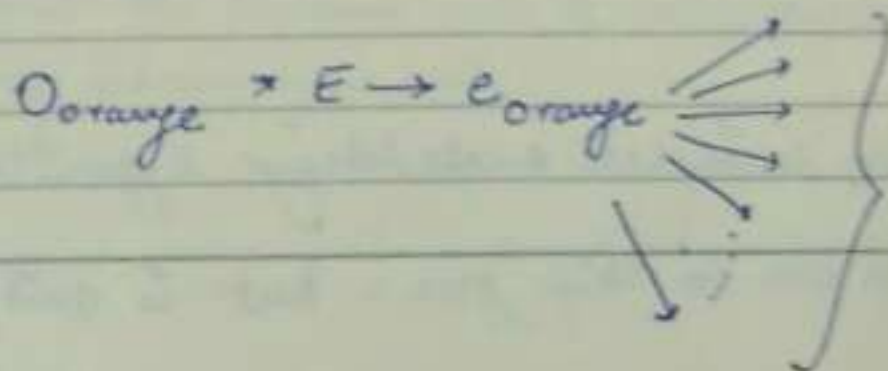 O orange * E → e orange